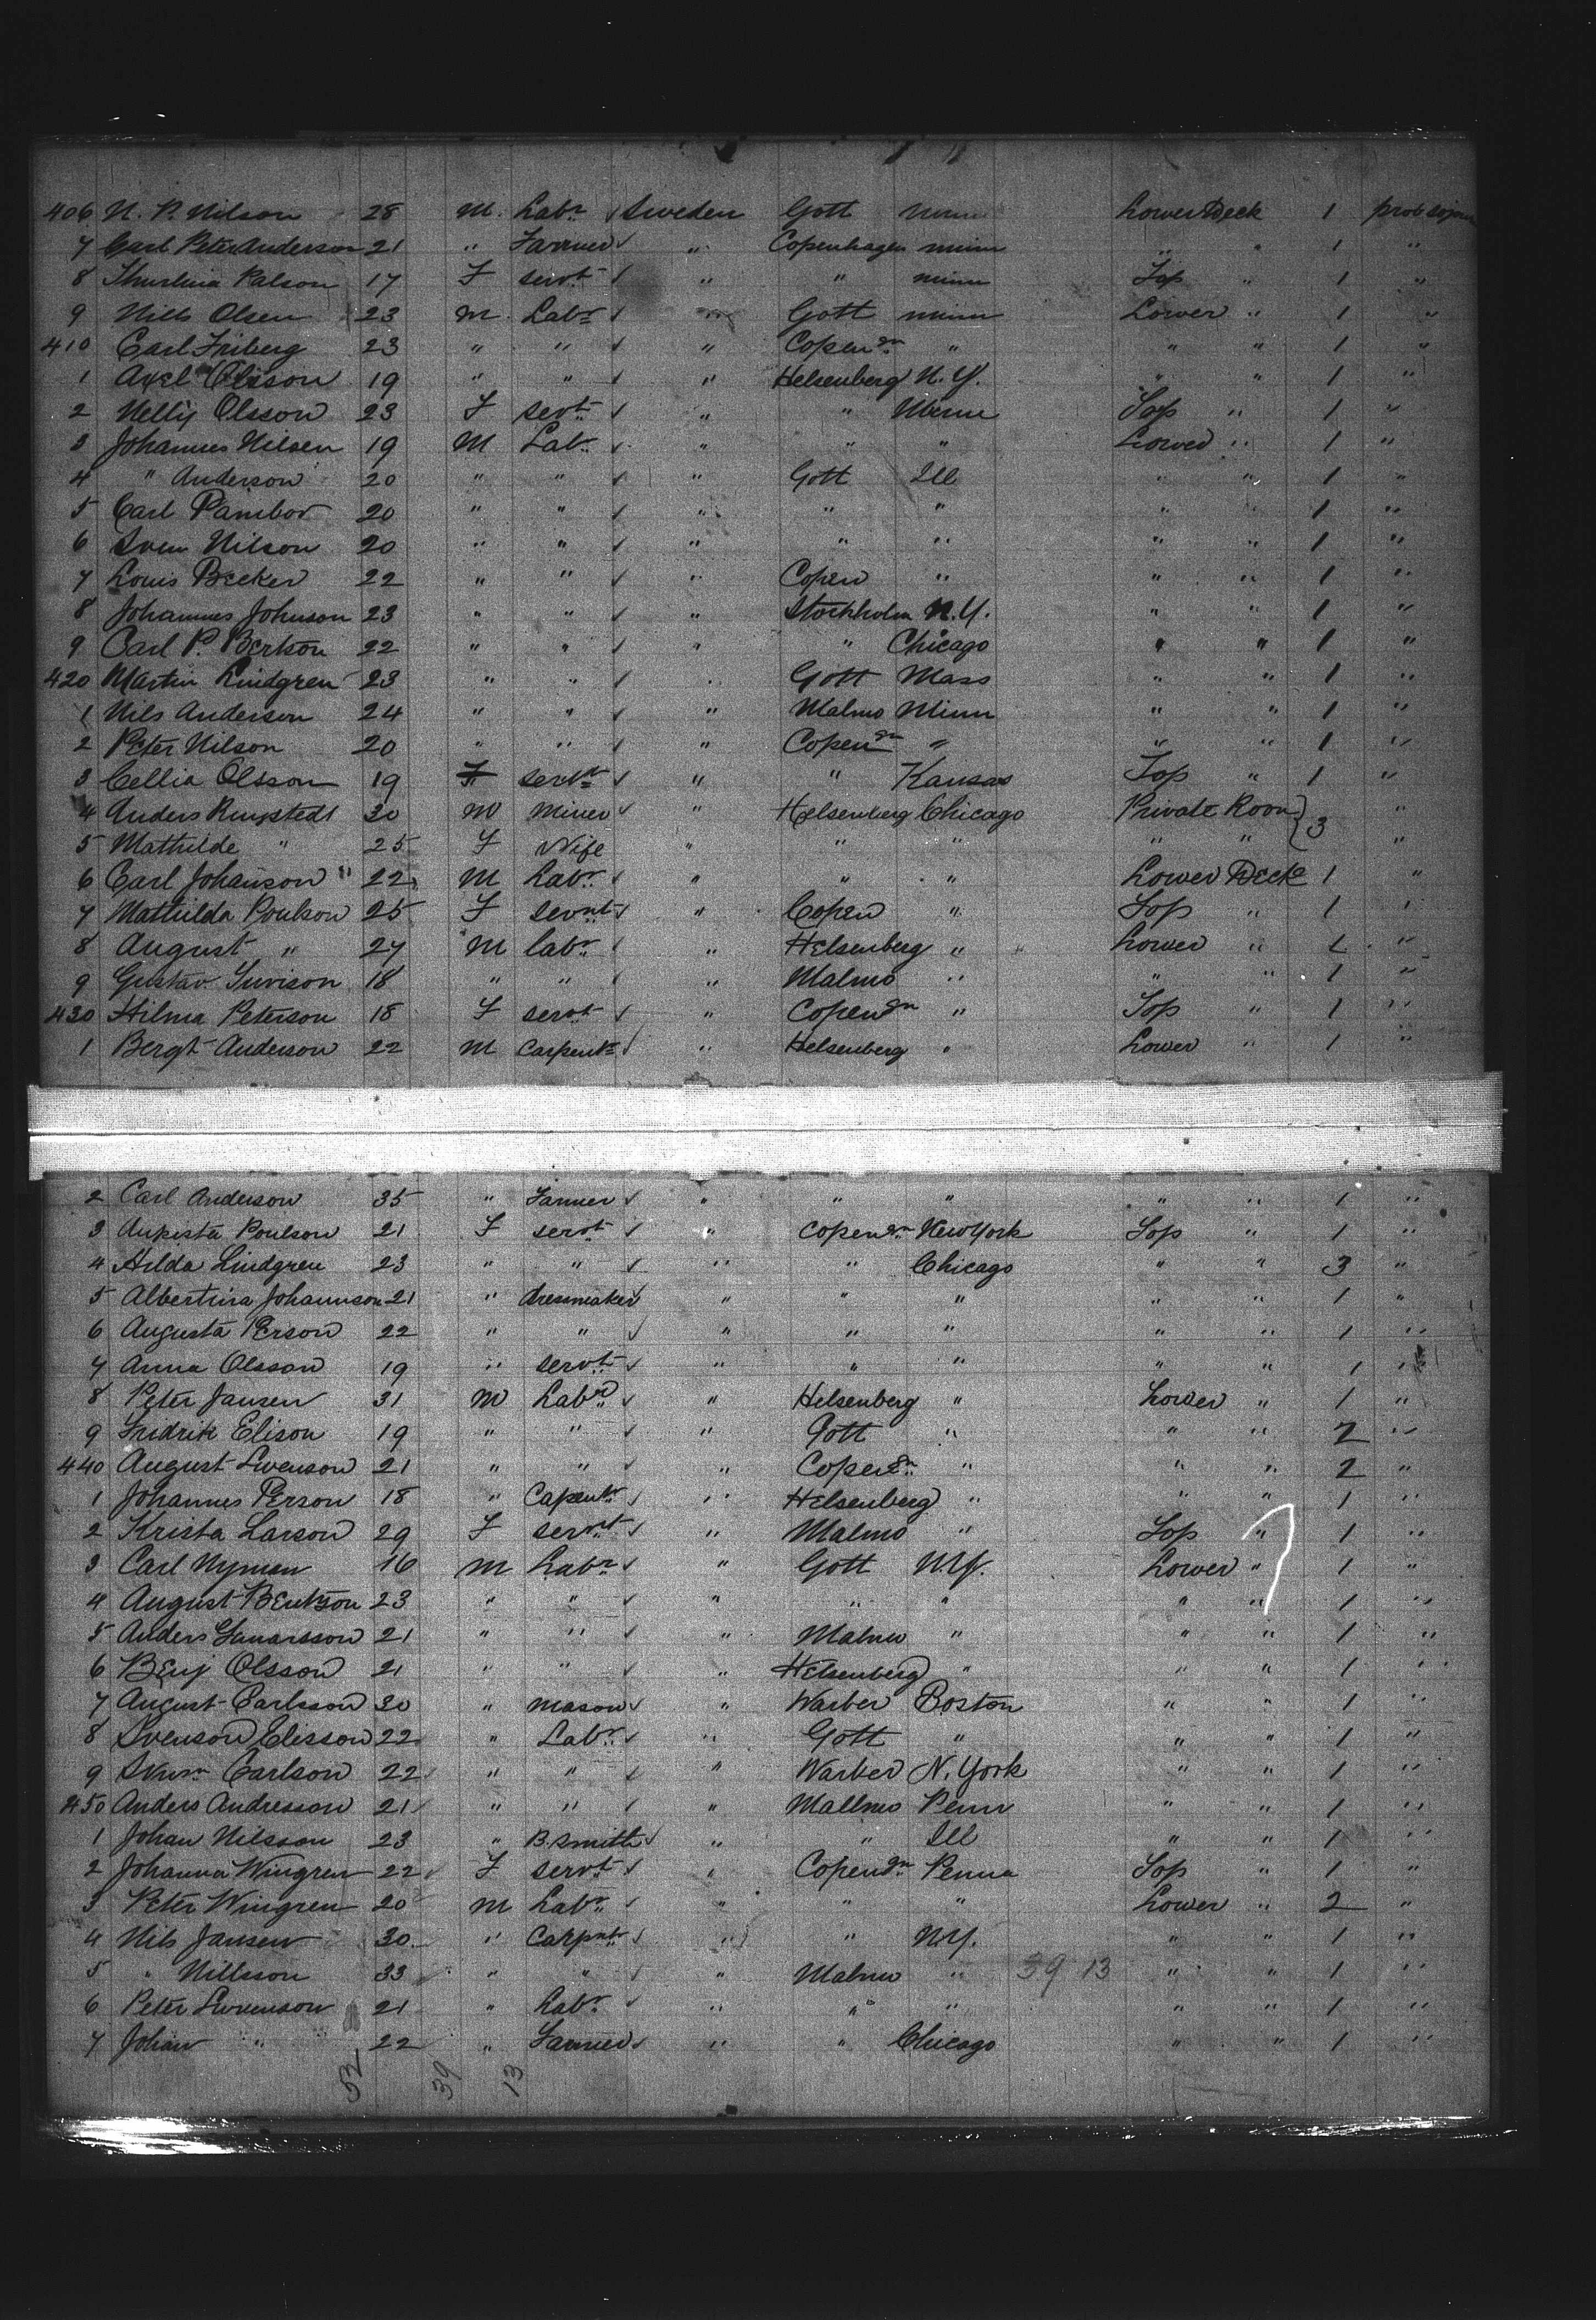 406 N. P. Nilson 28 M. Labr Sweden Gott Minn Lower Deck 1 prob sojou
7 Carl Peter Anderson 21 " Farmer " Copenhagen minn " " 1 "
8 Palson 17 F servt " " minn Top " 1 "
9 Nills Olsen 23 m. Labr " Gott minn Lower " 1 "
410 Carl Friberg 23 " " " Copengn " " " 1 "
1 Axel Olsson 19 " " " Helsenberg N.Y. " " 1 "
2 Nelly Olsson 23 F servt " " Minn Top " 1 "
3 Johannes Nilsen 19 M Labr " " " Lower " 1 "
4 " Anderson 20 " " " Gott Ill " " 1 "
5 Carl 20 " " " " " " " 1 "
6 Sven Nilson 20 " " " " " " " 1 "
7 Louis Becker 22 " " " Copen " " " 1 "
8 Johannes Johnson 23 " " " Stockholm N.Y. " " 1 "
9 Carl P. Bertson 22 " " " " Chicago " " 1 "
420 Martin Lindgren 23 " " " Gott Mass " " 1 "
1 Nils Anderson 24 " " " Malmo Minn " " 1 "
2 Peter Nilson 20 " " " Copengn " " " 1 "
3 Cellia Olsson 19 F servt " " Kansas Top " 1 "
4 Anders Ringstedt 30 M Miner " Helsenberg Chicago Private Room } 3 "
5 Mathilde " 25 F Wife " " " " " "
6 Carl Johanson " 22 M Labr " " " Lower Deck 1 "
7 Mathilda Poulson 25 F servnt " Copen " Top " 1 "
8 August " 27 M labr " Helsenberg " Lower " 1 "
9 Gustav 18 " " " Malmo " " " 1 "
430 Hilma Peterson 18 F servt " Copengn " Top " 1 "
1 Bergt Anderson 22 M Carpentr " Helsenberg " Lower " 1 "
2 Carl Anderson 35 " Farmer " " " " " 1 "
3 Aukista Poulson 21 F servt " Copengn New York Top " 1 "
4 Hilda Lindgren 23 " " " " Chicago " " 3 "
5 Albertina Johannson 21 " dressmaker " " " " " 1 "
6 Augusta Person 22 " " " " " " " 1 "
7 Anna Olsson 19 " servt " " " " " 1 "
8 Peter Jansen 31 M Labr " Helsenberg " Lower " 1 "
9 Fridrik Elison 19 " " " Gott " " " 2 "
440 August Svenson 21 " " " Copengn " " " 2 "
1 Johannes Person 18 " Capentr " Helsenberg " " " 1 "
2 Krista Larson 29 F servt " Malmo " Top " 1 "
3 Carl Nyman 16 M Labr " Gott N.Y. Lower " 1 "
4 August Bentson 23 " " " " " " " 1 "
5 Anders Gunarsson 21 " " " Malmo " " " 1 "
6 Benj Olsson 21 " " " Helsenberg " " " 1 "
7 August Carlsson 30 " Mason " Warber Boston " " 1 "
8 Svenson Elisson 22 " Labr " Gott " " " 1 "
9 Carlson 22 " " " Warber N. York " " 1 "
450 Anders Andresson 21 " " " Mallmo Penn " " 1 "
1 Johan Nilsson 23 " B. Smith " " Ill " " 1 "
2 Johanna Wingren 22 F servt " Copengn Penna Top " 1 "
3 Peter Wingren 20 M Labr " " " Lower " 2 "
4 Nils Jansen 30 " Carpntr " " N.Y. " " 1 "
5 " Nillsson 33 " " " Malmo " 39 13 " " 1 "
6 Peter Svenson 21 " Labr " " " " " 1 "
7 Johan " 22 " Farmer " " Chicago " " 1 "
52 39 13